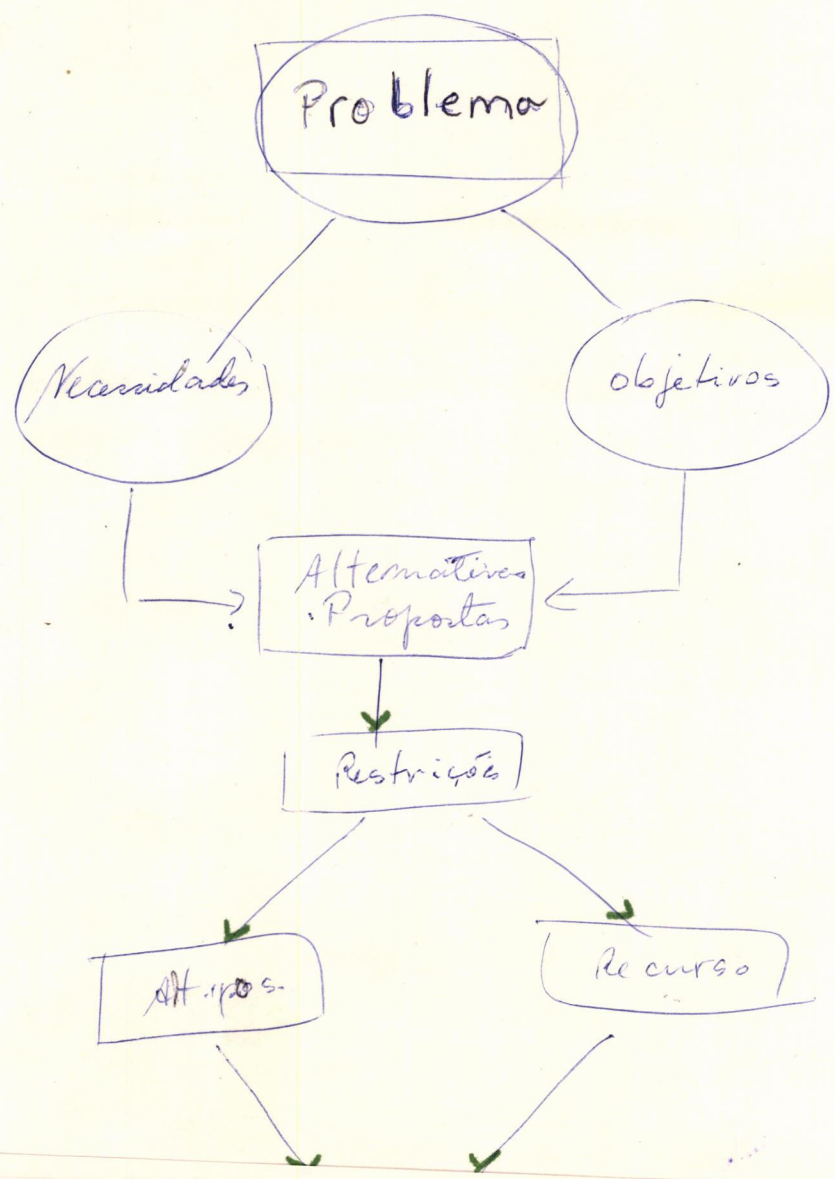 Problema
Necessidades
objetivos
Alternativas
.Propostas
Restrições
Alt.pos.
Recurso